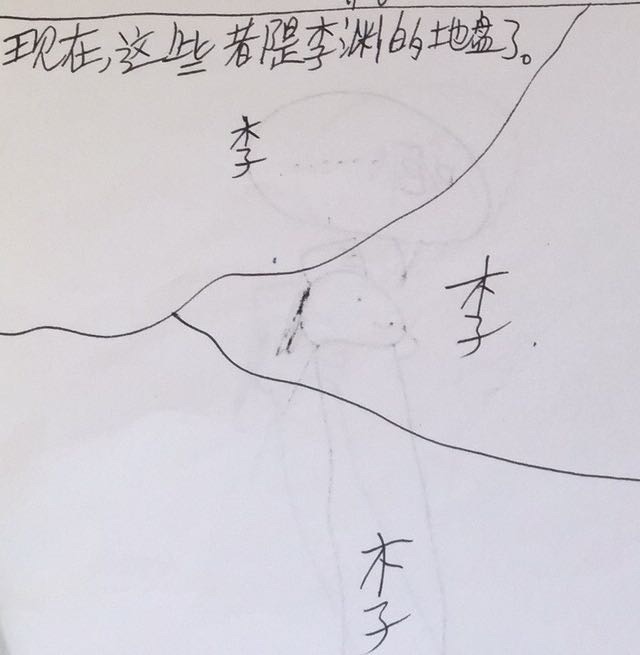 现在,这些都是李渊的地盘了。
李
李
李